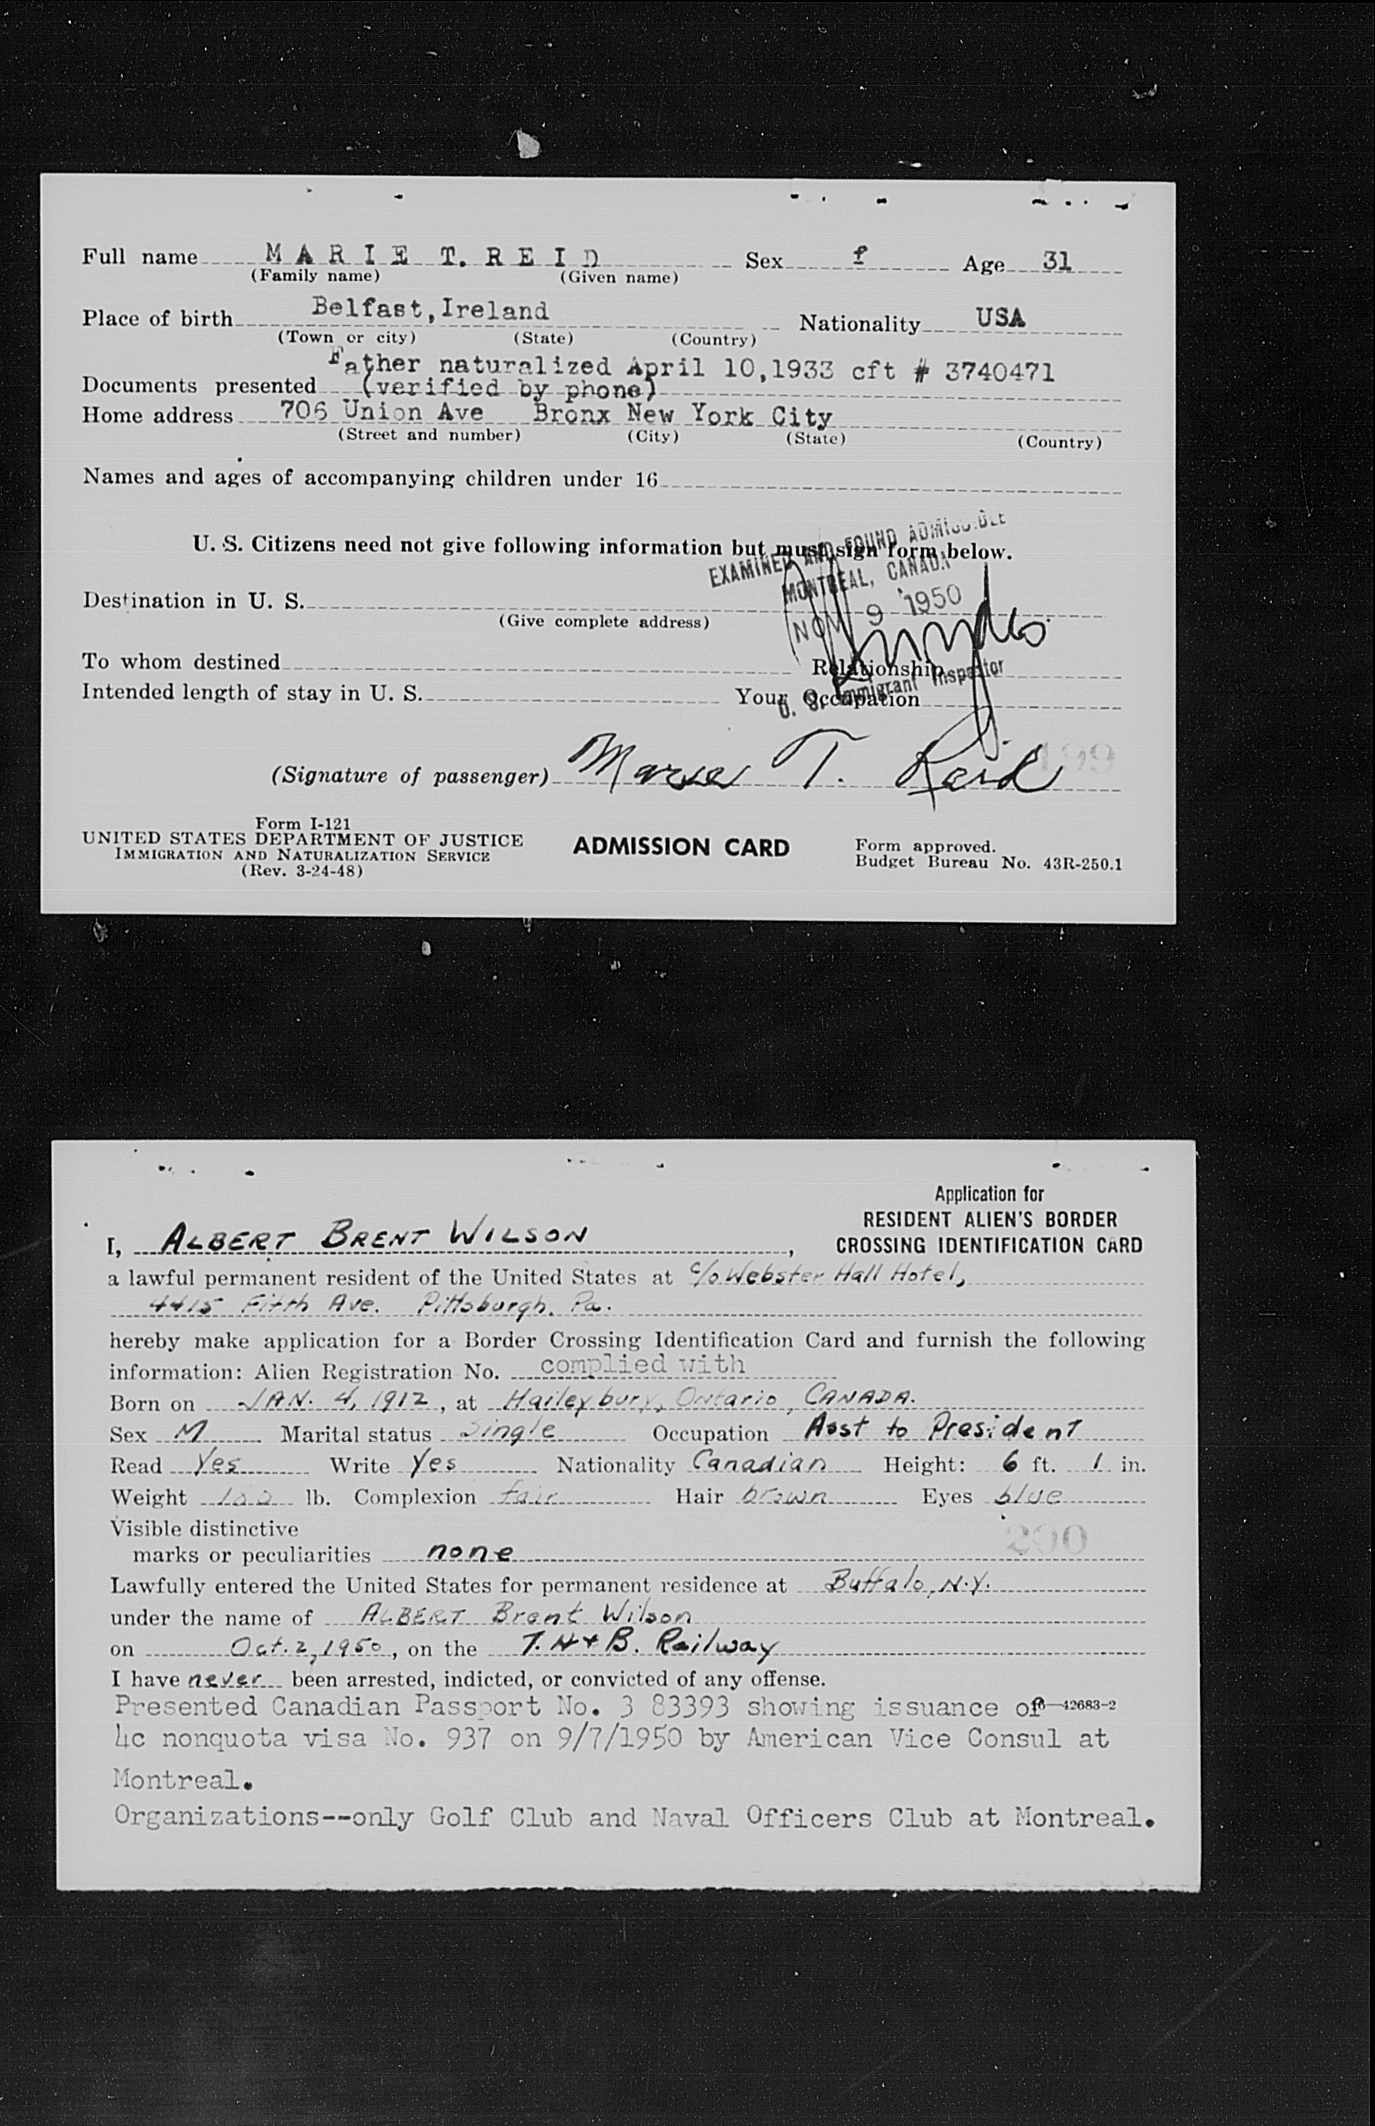 Full name MARIE T. REID Sex f Age 31
(Family name) (Given name)
Place of birth Belfast, Ireland Nationality USA
(Town or city) (State) (Country)
Father naturalized April 10,1933 cft # 3740471
Documents presented (verified by phone)
Home address 706 Union Ave Bronx New York City
(Street and number) (City) (State) (Country)
Names and ages of accompanying children under 16
U. S. Citizens need not give following information but must sign form below.
EXAMINED AND FOUND ADMISSIBLE
MONTREAL, CANADA
NOV 9 1950
Destination in U. S.
(Give complete address)
To whom destined Relationship
U. S. Immigrant Inspector
Intended length of stay in U. S. Your Occupation
(Signature of passenger) Marie T. Reid
199
Form I-121
UNITED STATES DEPARTMENT OF JUSTICE
IMMIGRATION AND NATURALIZATION SERVICE
(Rev. 3-24-48)
ADMISSION CARD
Form approved.
Budget Bureau No. 43R-250.1
Application for
RESIDENT ALIEN'S BORDER
CROSSING IDENTIFICATION CARD
I, ALBERT BRENT WILSON,
a lawful permanent resident of the United States at c/o Webster Hall Hotel,
4415 Fifth Ave. Pittsburgh, Pa.
hereby make application for a Border Crossing Identification Card and furnish the following
information: Alien Registration No. complied with
Born on JAN. 4, 1912, at Haileybury, Ontario, CANADA.
Sex M Marital status Single Occupation Asst to President
Read Yes Write Yes Nationality Canadian Height: 6 ft. 1 in.
Weight lb. Complexion fair Hair brown Eyes blue
Visible distinctive
marks or peculiarities none
200
Lawfully entered the United States for permanent residence at Buffalo, N.Y.
under the name of ALBERT Brent Wilson
on Oct. 2, 1950, on the T. H + B. Railway
I have never been arrested, indicted, or convicted of any offense.
Presented Canadian Passport No. 3 83393 showing issuance of 16—42683-2
4c nonquota visa No. 937 on 9/7/1950 by American Vice Consul at
Montreal.
Organizations--only Golf Club and Naval Officers Club at Montreal.